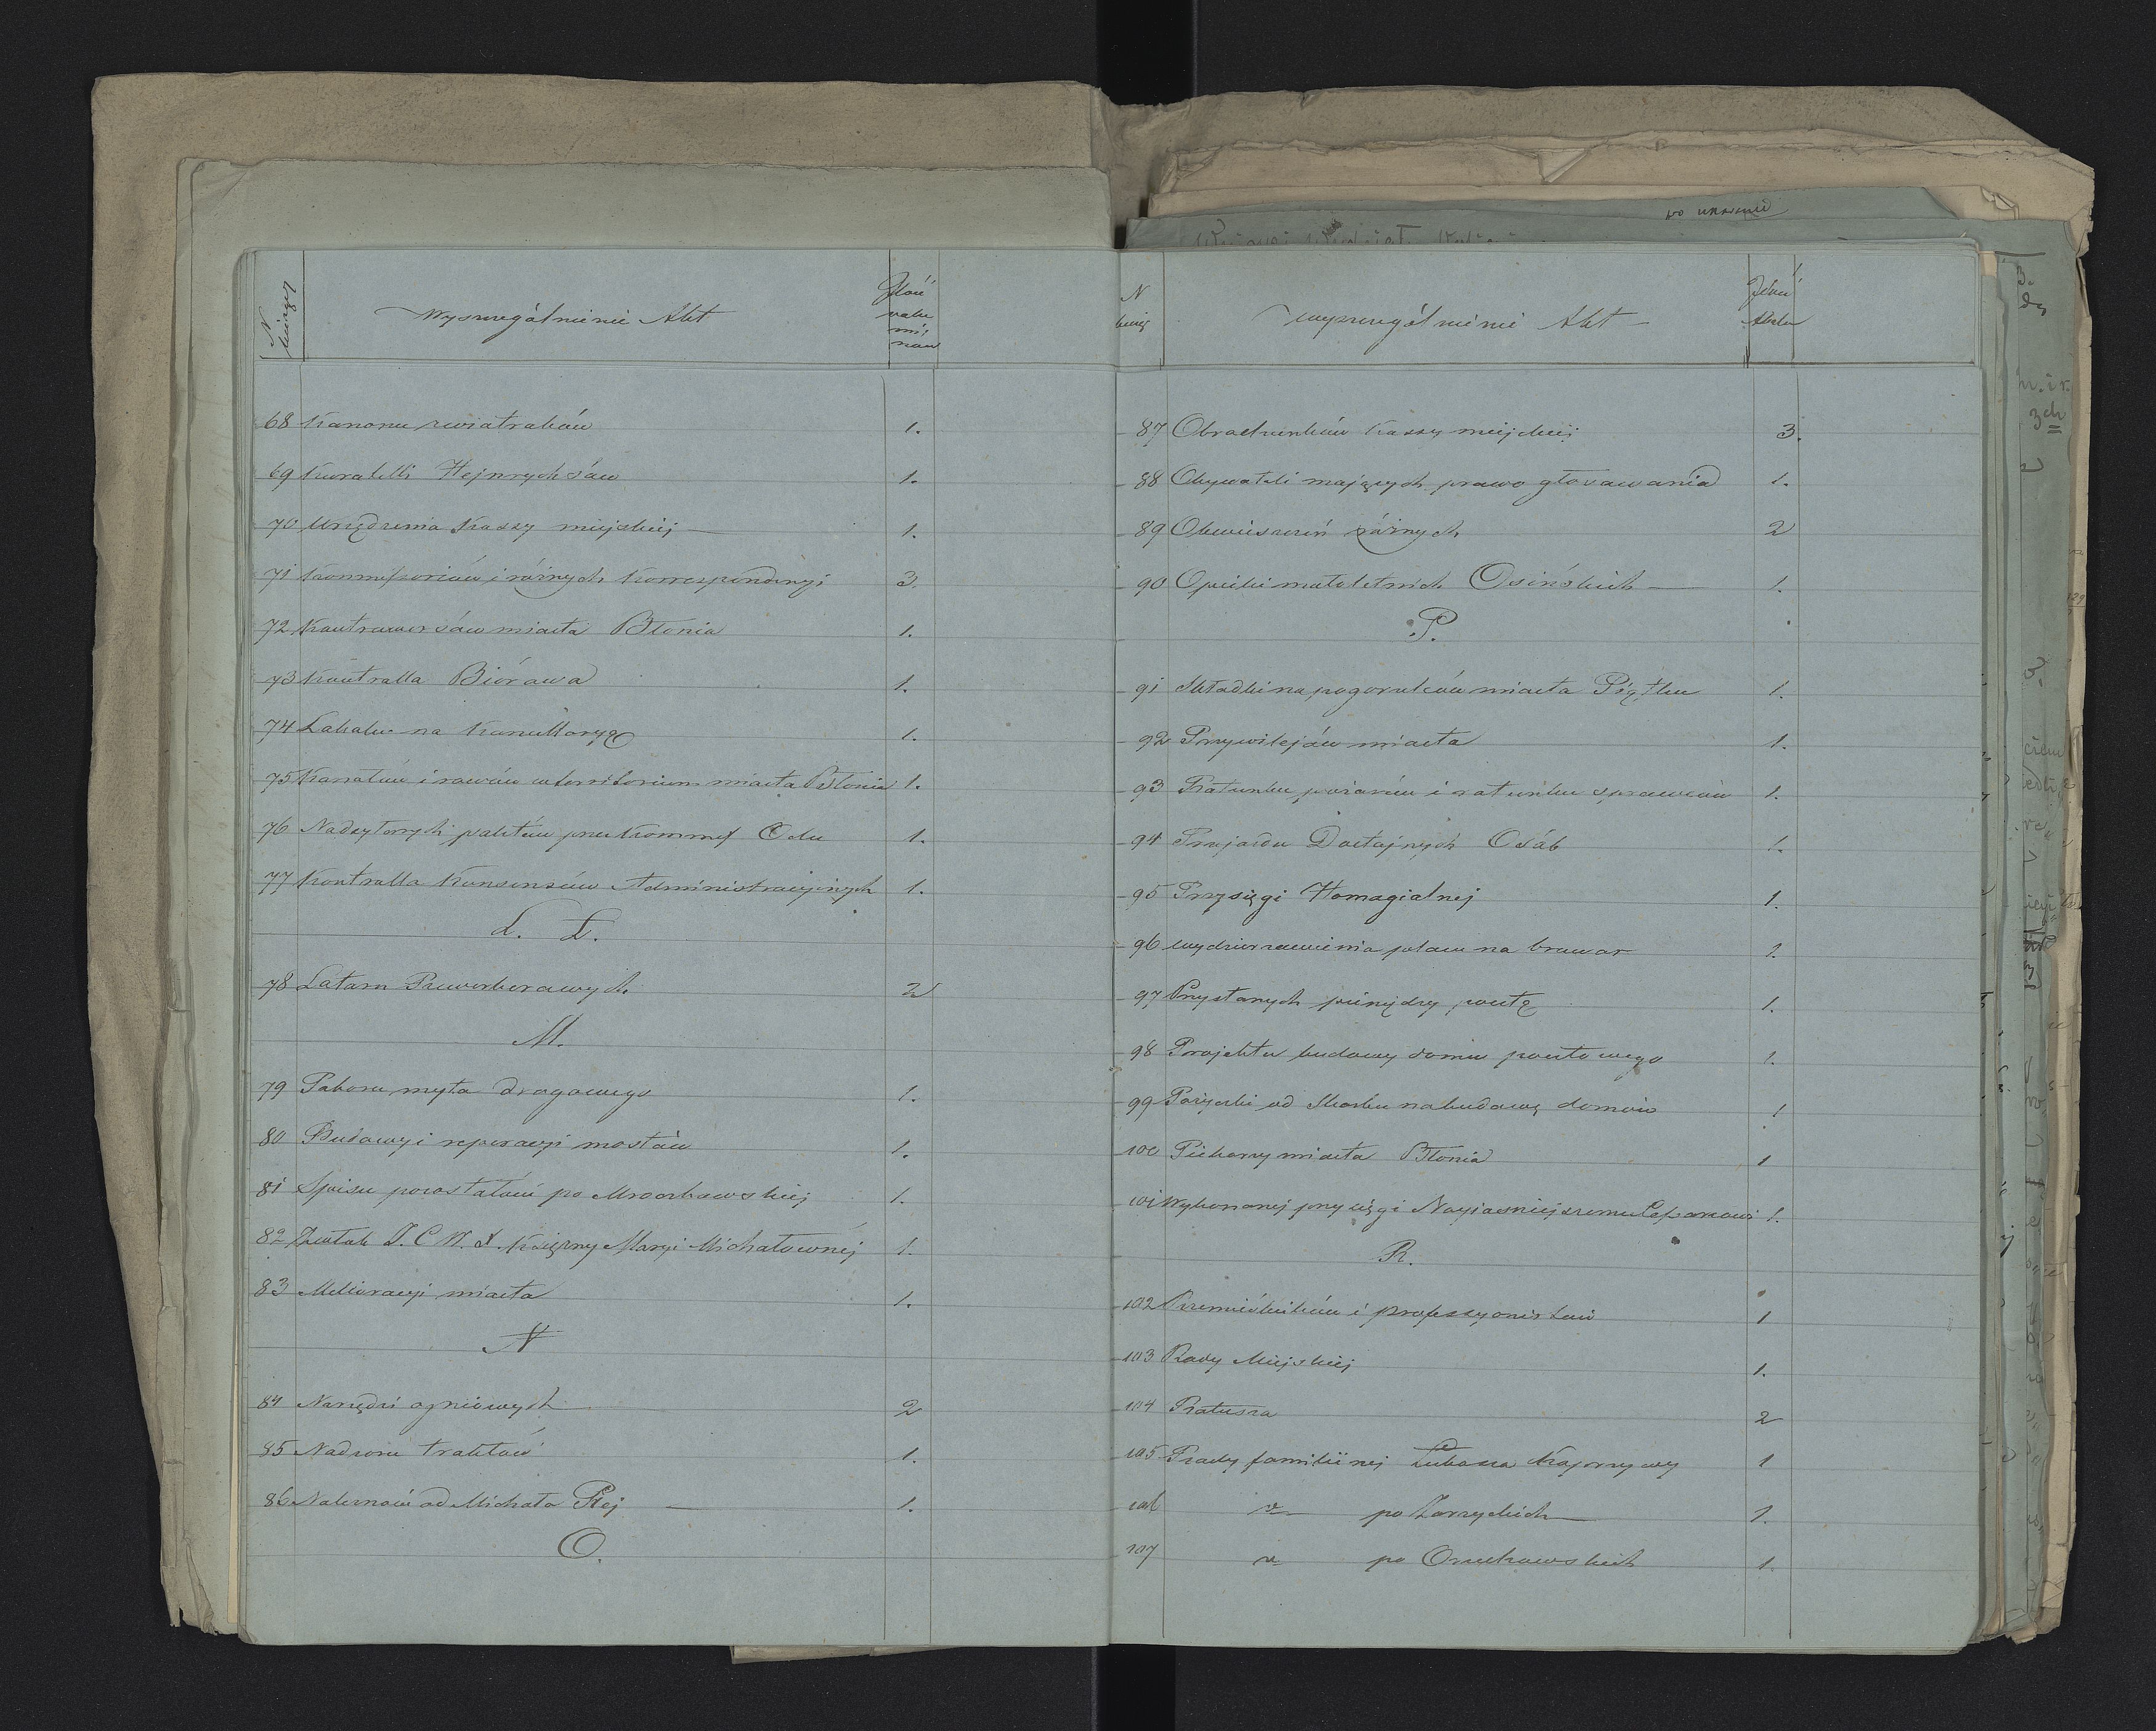 N bieżący
Wyszczególnienie Akt
Ilość
volu
mi
now
68 Kanonu z wiatraków 1.
69 Kuratelli Hejnrychsów 1.
70 Urządzenia Kassy miejskiej 1.
71 Kommissoriów i różnych Korrespondencyi 3.
72 Kontrawersów miasta Błonia 1.
73 Kontrolla Biórowa 1.
74 Lokalu na Kancellaryę 1.
75 Kanałów i rowów w territorium miasta Błonia 1.
76 Nadsyłanych pakietów przez Kommis Obr 1.
77 Kontrolla Konsensów Administracyjnych 1.
L. Ł.
78 Latarn Rewerberowych 2
M.
79 Poboru myta drogowego 1.
80 Budowy i reperacyi mostów 1.
81 Spisu pozostałości po Mroczkowskiej 1.
82 Zwłok J. C. W. X. Księżny Maryi Michałownéj 1.
83 Melioracyi miasta 1.
N
84 Narzędzi ogniowych 2
85 Nadzoru traktów 1.
86 Należności od Michała Rej 1.
O.
wo
N
bieżą
Wyszczególnienie Akt
Ilość
87 Obrachunków Kassy miejskiej 3.
88 Obywateli mających prawo głosowania 1.
89 Obwieszczeń różnych 2
90 Opieki małoletnich Osińskich 1.
P.
91 Składki na pogorzelców miasta Piątku 1.
92 Przywilejów miasta 1.
93 Ratunku pożarów i ratunku sprawców 1.
94 Przejazdu Dostojnych Osób 1.
95 Przysięgi Homagialnej 1.
96 Wydzierzawienia placu na browar 1.
97 Przysłanych pieniędzy pocztą 1.
98 Projektu budowy domu pocztowego 1.
99 Pożyczki od Skarbu na budowę domów 1
100 Piekarzy miasta Błonia 1
101 Wykonanej przysięgi Nayjasniejszemu Cesarzowi 1.
R.
102 Rzemieślników i professyonistów 1
103 Rady Miejskiej 1.
104 Ratusza 2
105 Rady familiinej Łukasza 1
106 " po Zarzyckich 1.
107 " po Orzechowskich 1.